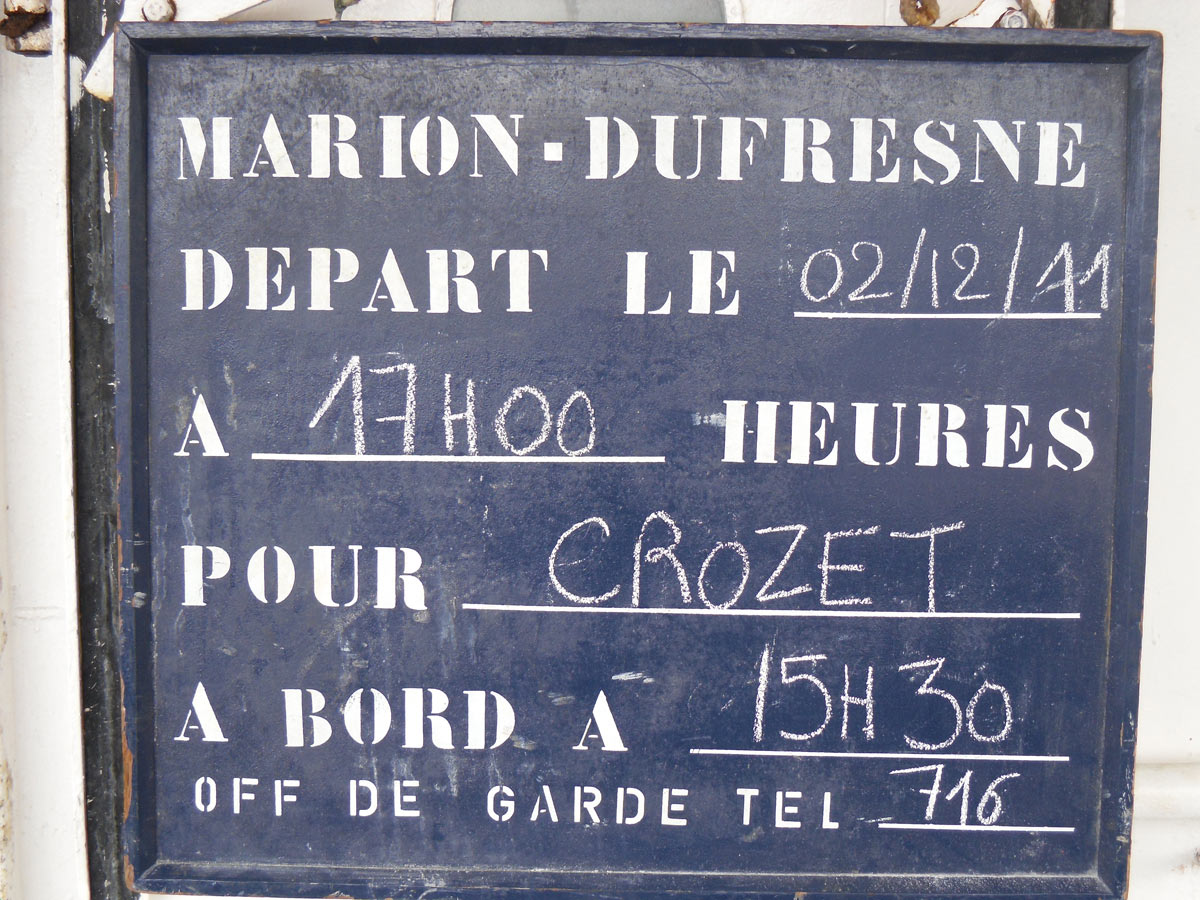 MARION-DUFRESNE
DEPART LE 02/12/11
A 17H00 HEURES
POUR CROZET
A BORD A 15H30
OFF DE GARDE TEL 716